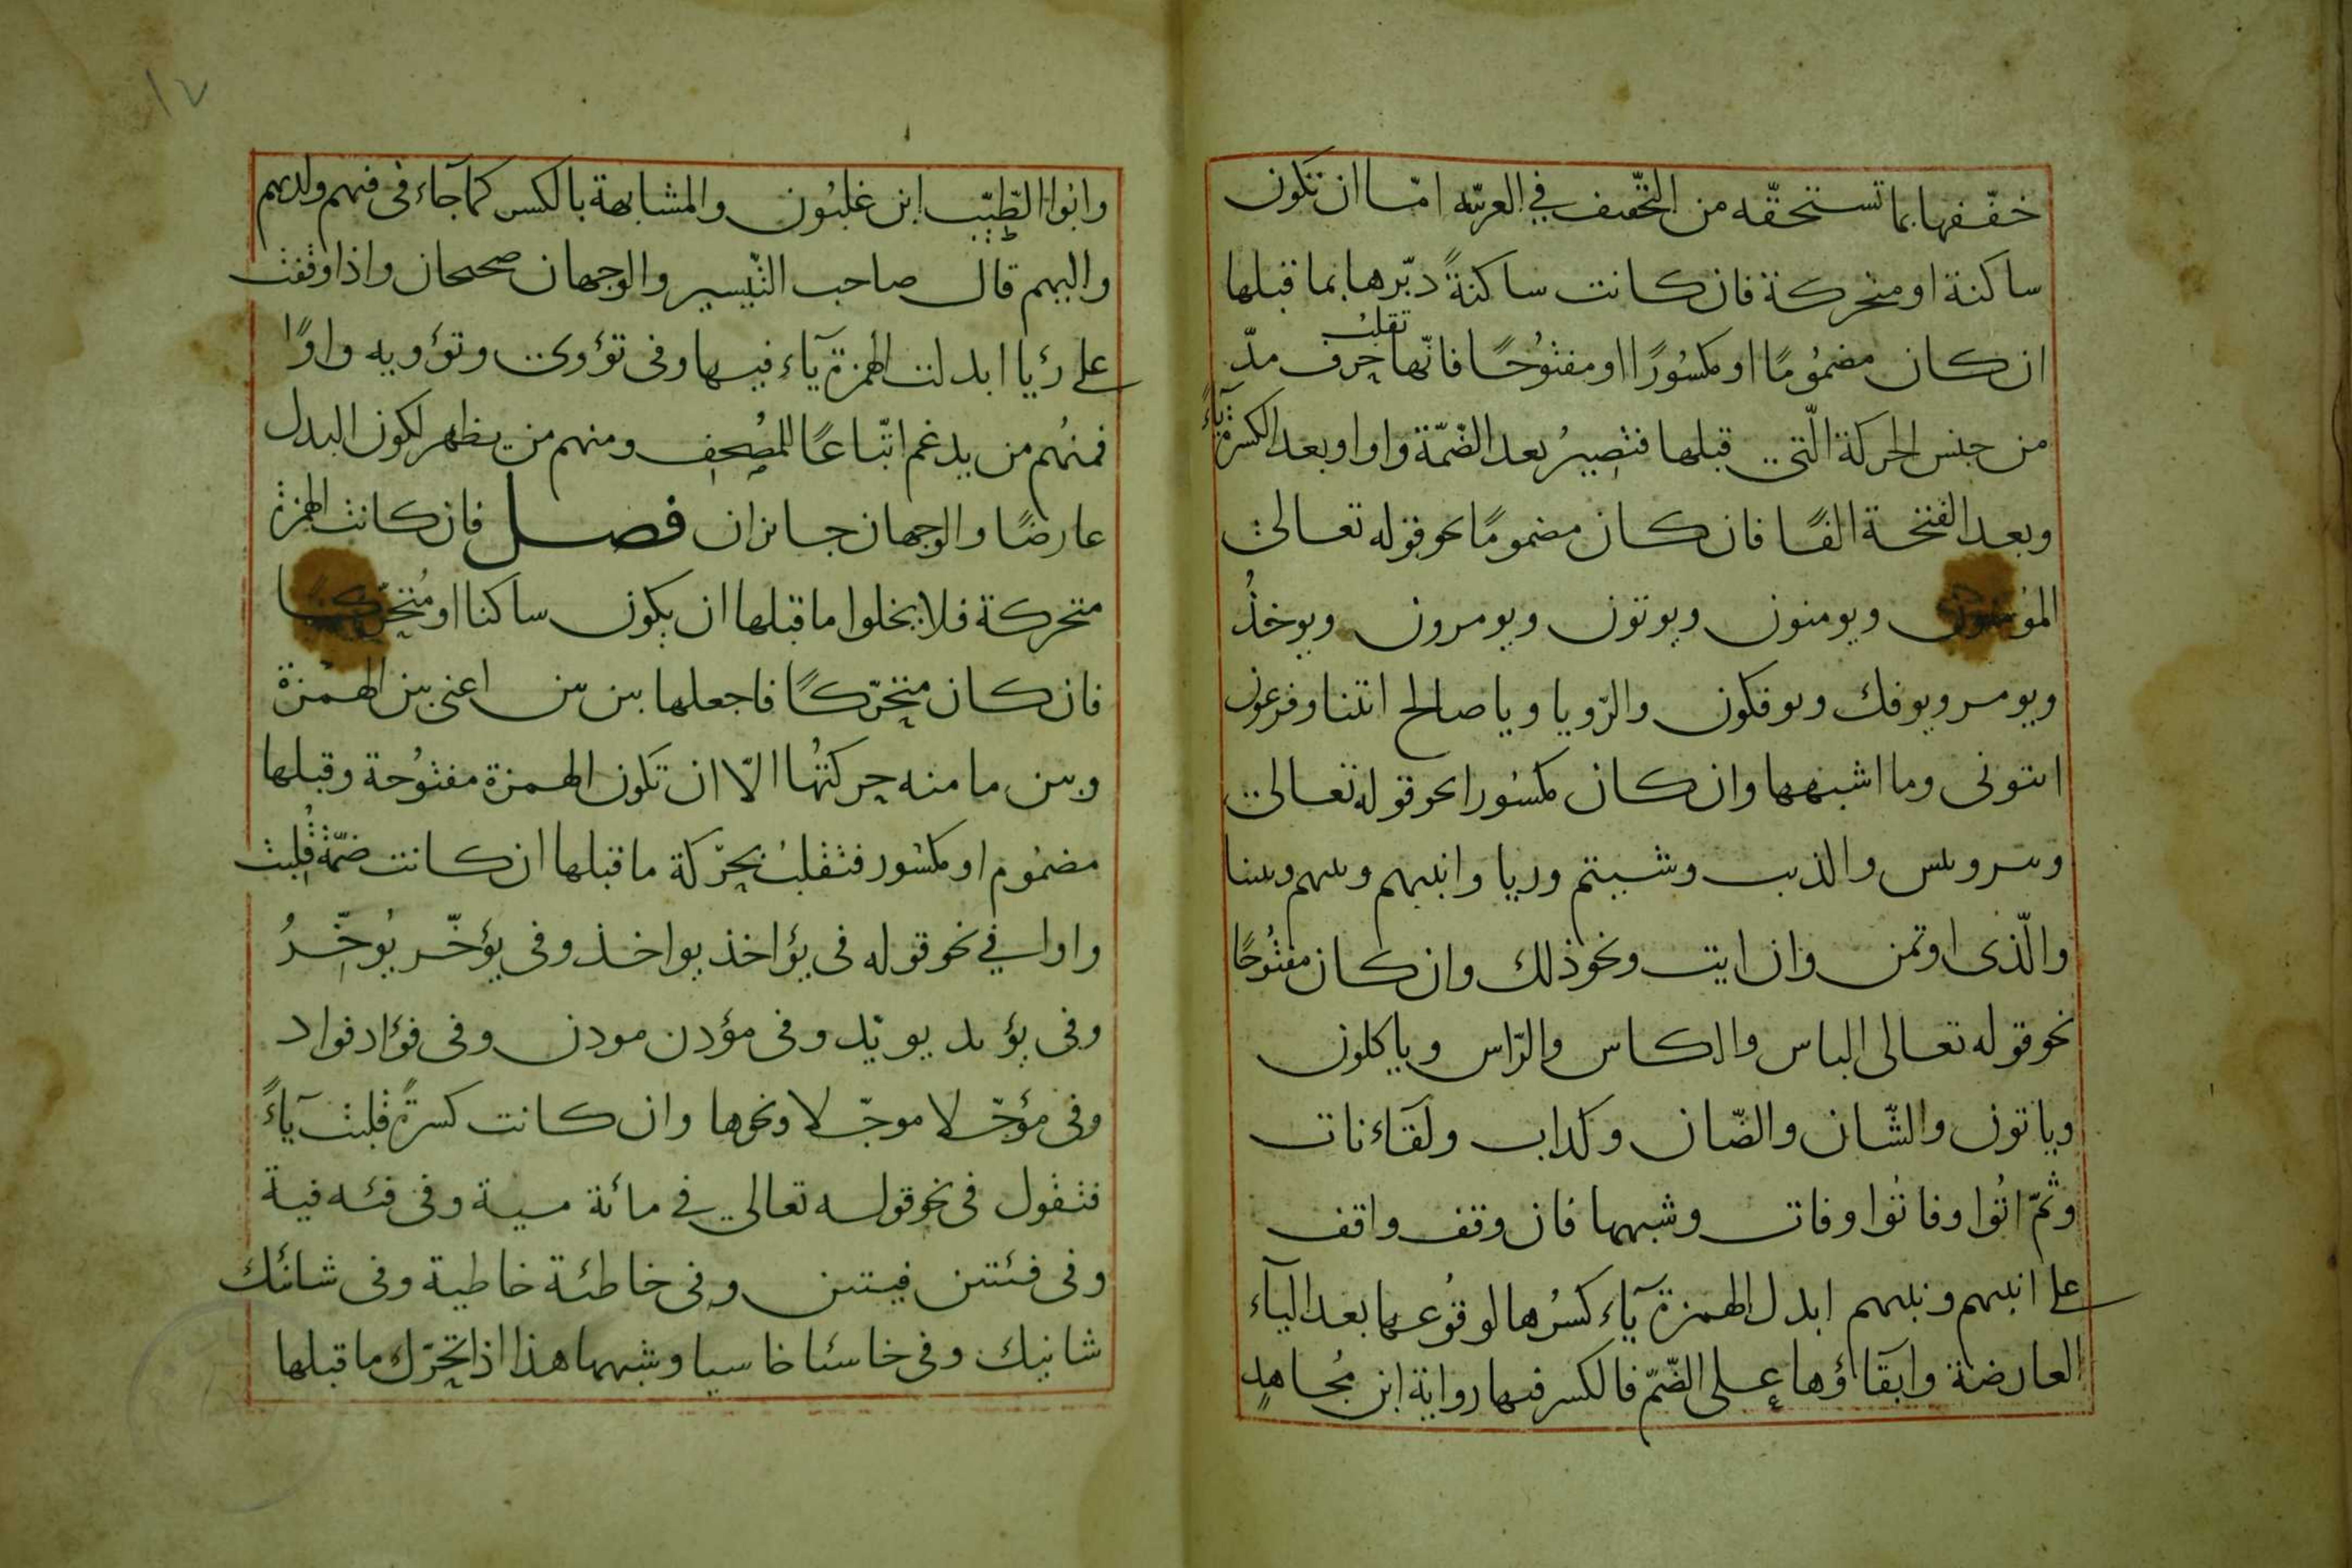 خفّفها بما تستحقّه من التّخفيف في العربيّه امّا ان تكون
ساكنة او متحركة فان كانت ساكنةً دبّرها بما قبلها
ان كان مضمُومًا او مكسُورًا او مفتوُحًا فانّها تقلبُ حرف مدّ
من جنس الحركة الّتى قبلها فتصيرُ بعد الضّمّة واوا وبعد الكسرة ياءً
وبعد الفتحة الفًا فان كان مضمومًا نحو قوله تعالى
المؤمنون ويومنون ويوتون ويومرون ويوخذُ
ويومر ويوفك ويوفكون والرّويا ويا صالح ائتنا وفرعون
ائتونى وما اشبهها وان كان مكسُورا نحو قوله تعالى
وبير وبيس والذيب وشيتم وريا وانبيهم ونبيهم ونبينا
والّذى اوتمن وان ايت ونحو ذلك وان كان مفتُوحًا
نحو قوله تعالى الباس والكاس والرّاس وياكلون
وياتون والشّان والضّان وكداب ولقآءنات
وثمّ اتُوا وفاتُوا وفات وشبهها فان وقف واقف
على انبيهم ونبيهم ابدل الهمزة يآء كسُرها لوقوُعها بعد اليآء
العارضة وابقآؤها على الضّمّ فالكسر فيها رواية ابن مُجاهدٍ
وابوا الطّيّب ابن غلبُون والمشابهة بالكسر كما جآء فى فيهم ولديهم
واليهم قال صاحب التّيسير والوجهان صحيحان واذا وقفت
على رؤيا ابدلت الهمزة يآء فيها وفى تؤوى وتؤويه واوًا
فمنهُم من يدغم اتّباعًا للمصُحف ومنهم من يظهر لكون البدل
عارضًا والوجهان جايزان فصل فان كانت الهمزة
متحركة فلا يخلوا ما قبلها ان يكون ساكنا او مُتحرّكًا
فان كان متحرّكًا فاجعلها بين بين اعنى بين الهمزة
وبين ما منه حركتُها الّا ان تكون الهمزة مفتوُحة وقبلها
مضمُوم او مكسُور فتقلبُ بحرّكة ما قبلها ان كانت ضمّة قُلِبت
واوا في نحو قوله فى يؤاخذ يواخذ وفى يؤخّر يُوخّرُ
وفى يؤيد يويّد وفى مؤذن موذن وفى فؤاد فواد
وفى مؤجّلا موجّلا ونحوها وان كانت كسرةً قلبت يآءً
فتقول فى نحو قوله تعالى في مائة مية وفى فئه فية
وفى فئتين فيتين وفى خاطئة خاطية وفى شانئك
شانيك وفى خاسئا خاسيا وشبهها هذا اذا تحرّك ما قبلها
١٧